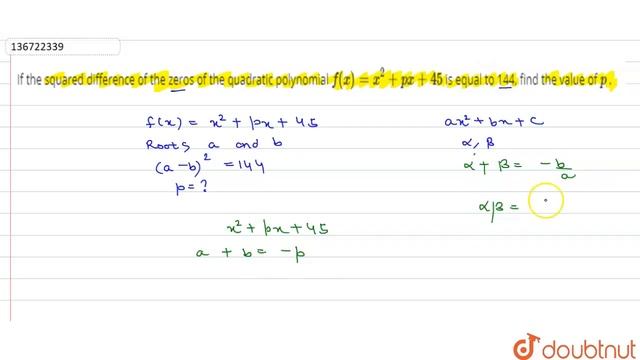 136722339
If the squared difference of the zeros of the quadratic polynomial f(x) = x² + px + 45 is equal to 144, find the value of p.
f(x) = x² + px + 45
Roots a and b
(a - b)² = 144
p = ?
x² + px + 45
a + b = -p
ax² + bx + c
α, β
α + β = -b/a
αβ =
doubtnut